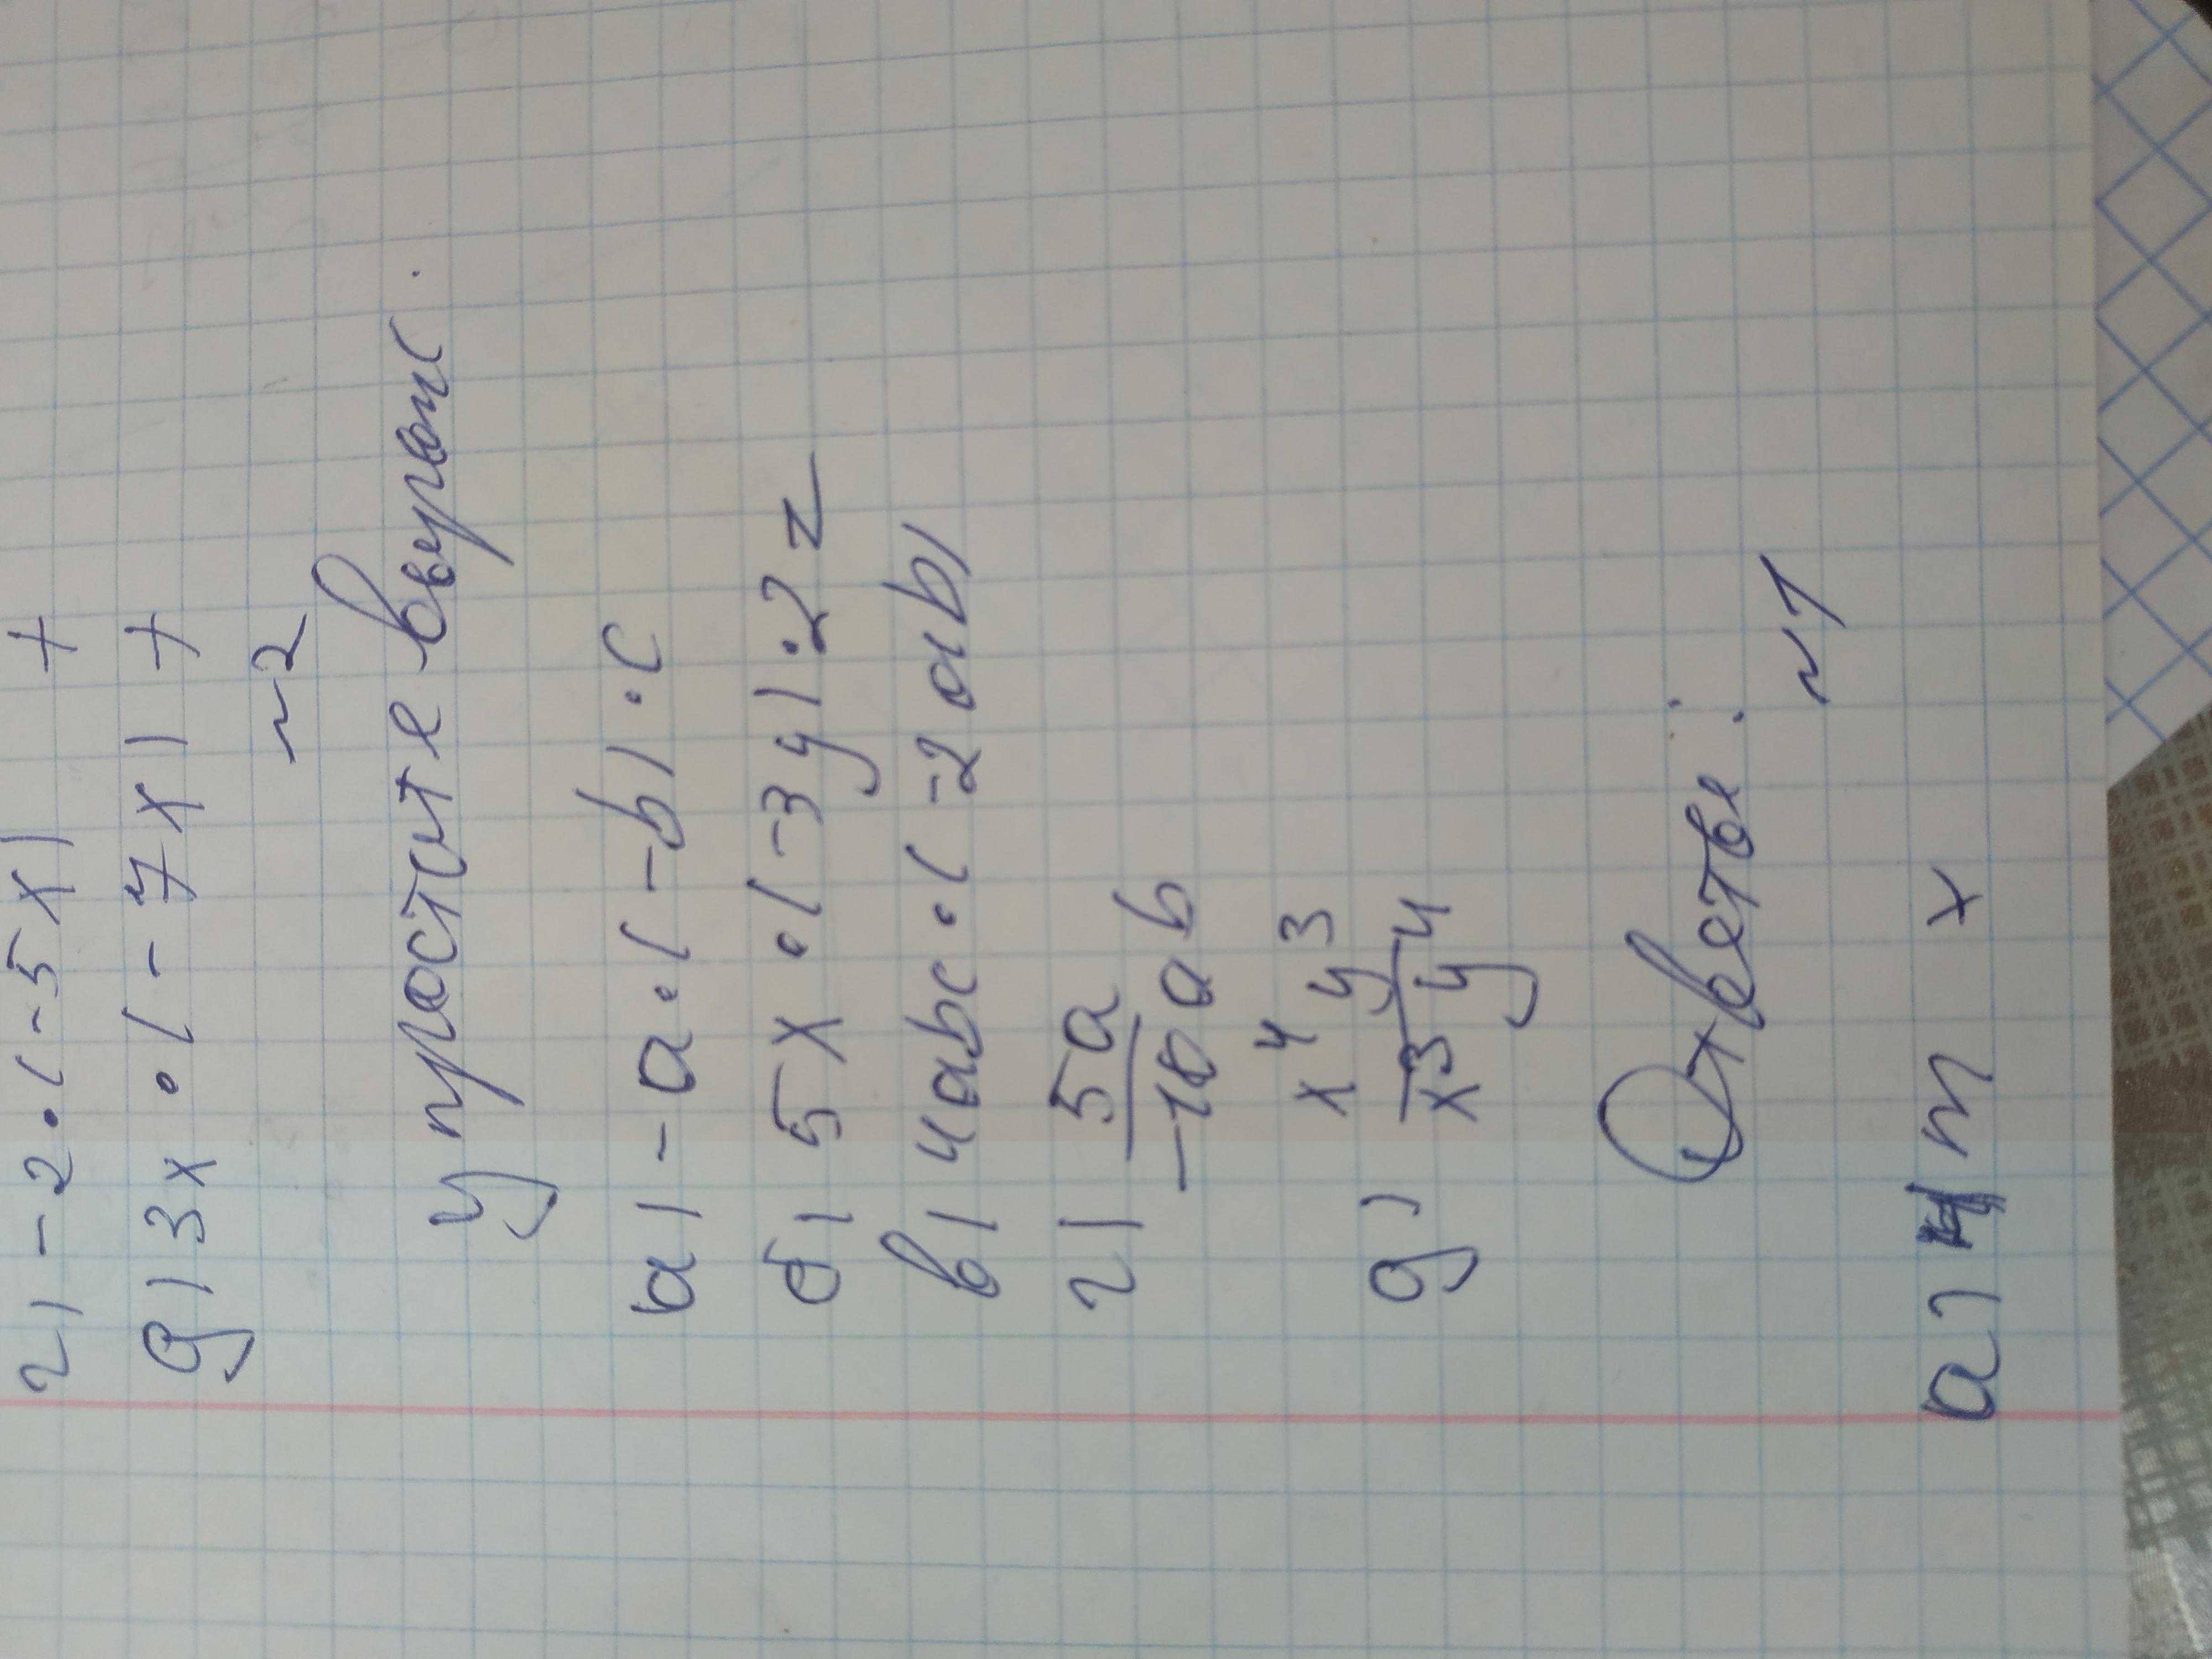 г) -2·(-5x) +
д) 3x·(-7x) +
~2
упростите выраж.
а) -a·(-b)·c
б) 5x·(-3y)·2z
в) 4abc·(-2ab)
г) 5a
-10ab
x⁴ y³
д)
x³ y⁴
Ответы:
~1
а) m x